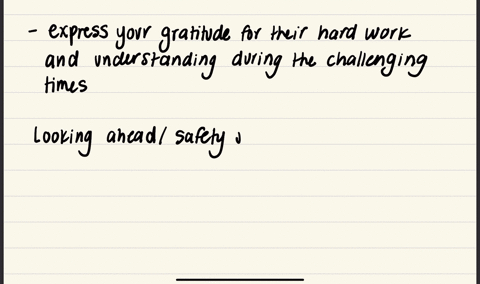 - express your gratitude for their hard work
and understanding during the challenging
times
Looking ahead/ safety